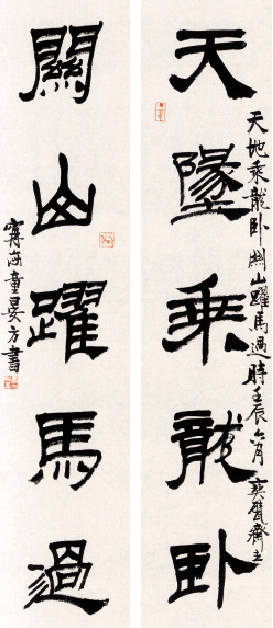 天墬乘龍卧
天地乘龍卧關山躍馬過時壬辰六月
關山躍馬過
寧海童晏方書